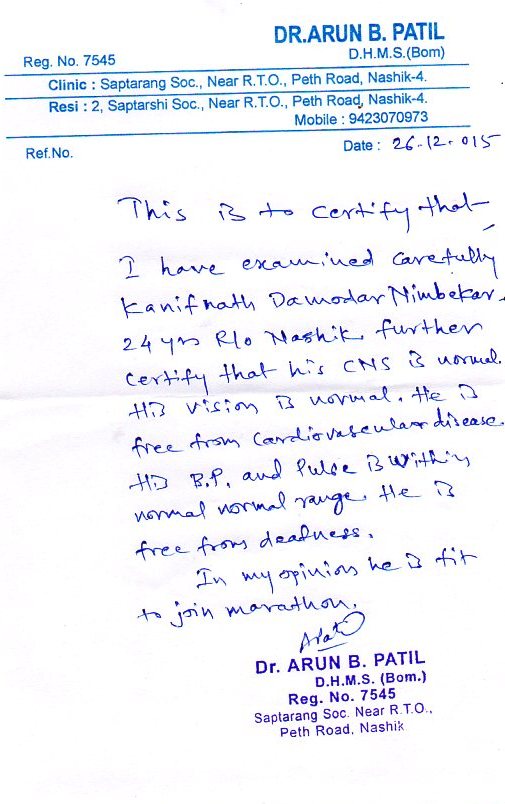 DR.ARUN B. PATIL
Reg. No. 7545
D.H.M.S.(Bom)
Clinic : Saptarang Soc., Near R.T.O., Peth Road, Nashik-4.
Resi : 2, Saptarshi Soc., Near R.T.O., Peth Road, Nashik-4.
Mobile : 9423070973
Ref.No.
Date : 26.12.015
This is to certify that
I have examined carefully
Kanifnath Damodar Nimbekar.
24 yrs R/o Nashik, further
certify that his CNS is normal.
His vision is normal. He is
free from cardiovascular disease.
His B.P. and Pulse is within
normal normal range. He is
free from deafness.
In my opinion he is fit
to join marathon.
Dr. ARUN B. PATIL
D.H.M.S. (Bom.)
Reg. No. 7545
Saptarang Soc. Near R.T.O.,
Peth Road, Nashik